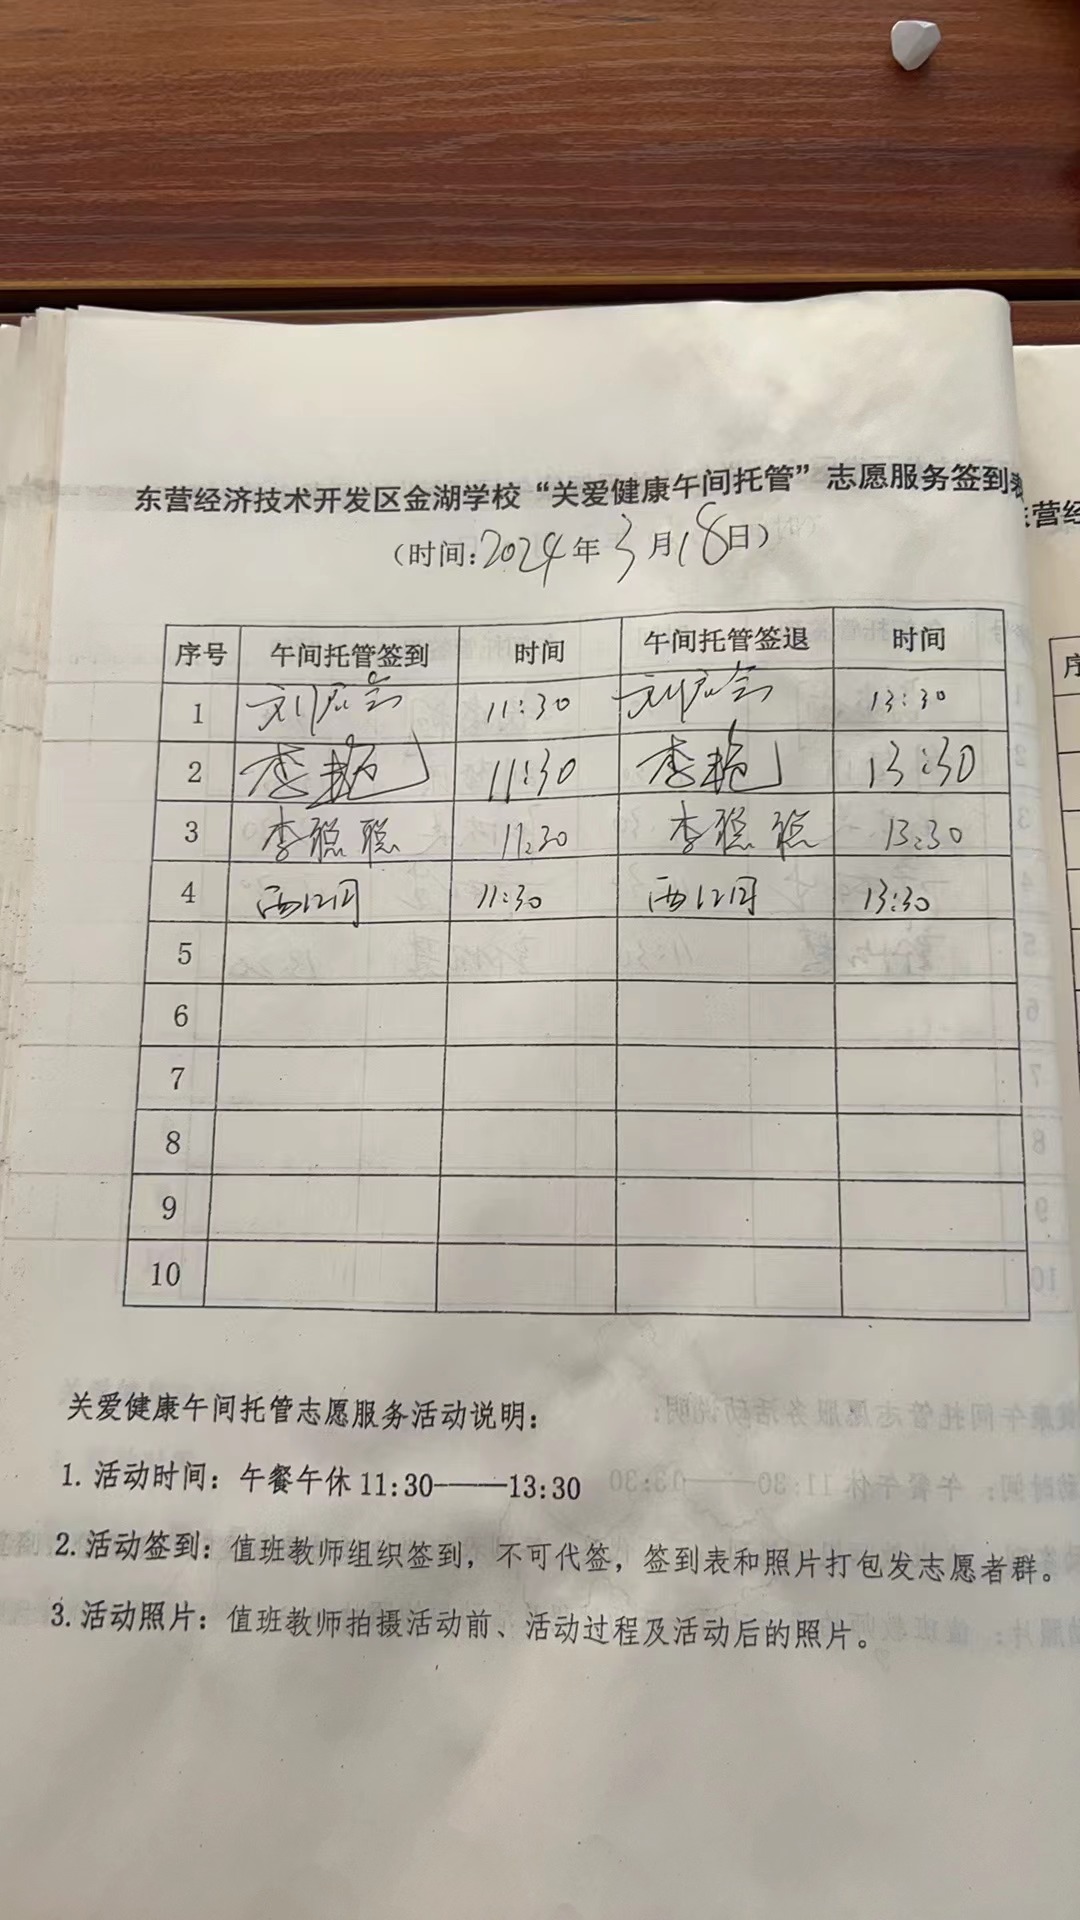 东营经济技术开发区金湖学校“关爱健康午间托管”志愿服务签到表
(时间:2024年3月18日)
序号 午间托管签到 时间 午间托管签退 时间
1 11:30 13:30
2 李艳 11:30 李艳 13:30
3 李聪聪 11:30 李聪聪 13:30
4 11:30 13:30
5
6
7
8
9
10
关爱健康午间托管志愿服务活动说明:
1. 活动时间: 午餐午休 11:30——13:30
2. 活动签到: 值班教师组织签到, 不可代签, 签到表和照片打包发志愿者群。
3. 活动照片: 值班教师拍摄活动前、活动过程及活动后的照片。
东营经
序